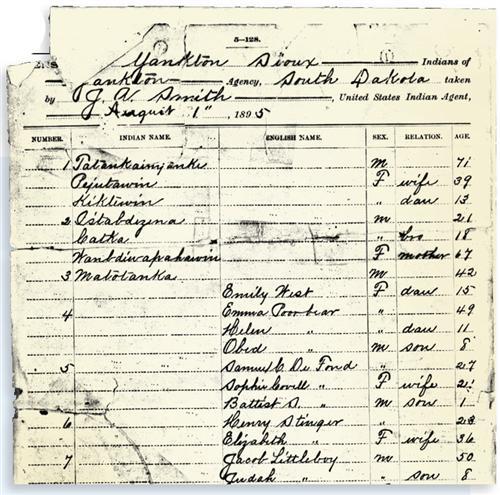 5-128.
Yankton Sioux (1) Indians of
ankton Agency, South Dakota taken
by J. A. Smith, United States Indian Agent,
August 1", 1895
NUMBER. INDIAN NAME. ENGLISH NAME. SEX. RELATION. AGE.
1 Tatankainyanke M 71
Pejutawin F wife 39
Kiktewin " dau 13
2 Istabdezena M 21
Catka " bro 18
Wanbdiwapahawin F mother 67
3 Matotanka M 42
Emily West F dau 15
4 Emma Poor bear " 49
Helen " " dau 11
Obed " M son 8
5 Samuel C De Fond " 27
Sophie Covill " F wife
Battest S. " M son 1
6 Henry Stinger "
Elizabeth " F wife 36
7 Jacob Littleboy M 50
Judah " " son 8